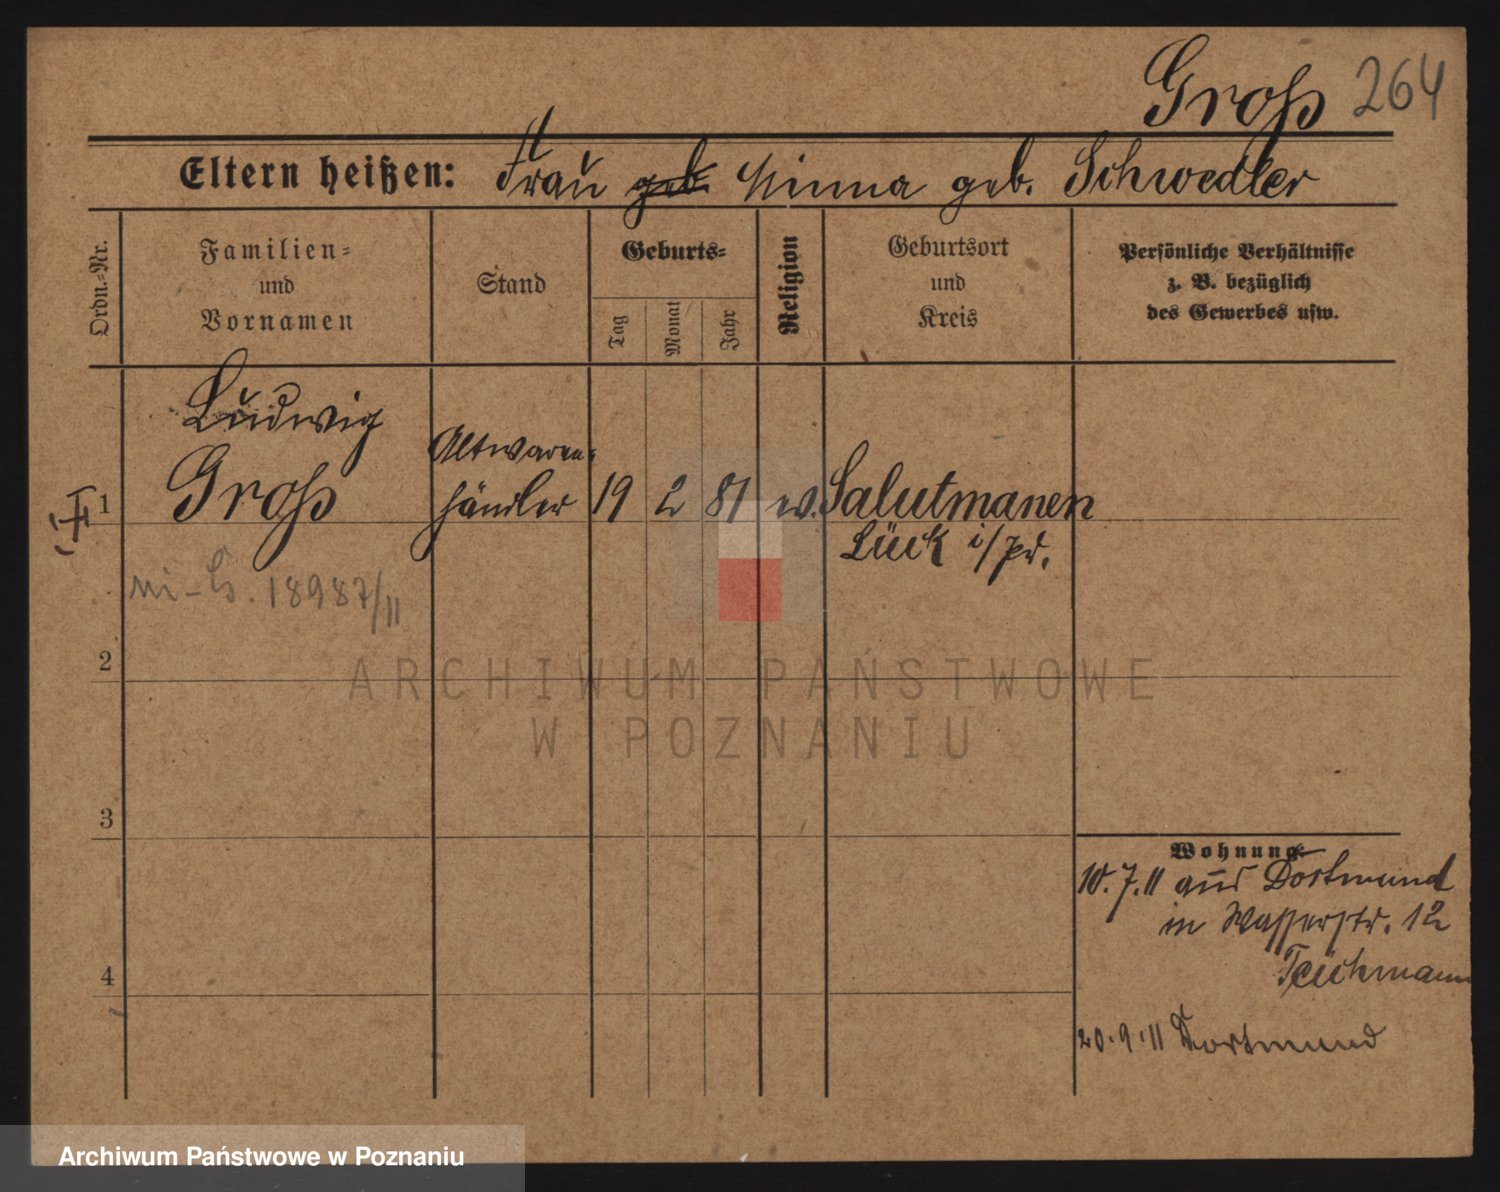 Groß 264
Eltern heißen: Frau geb. Minna geb. Schwedler
Ordn.-Nr.
Familien- und Vornamen
Stand
Geburts-
Tag
Monat
Jahr
Religion
Geburtsort und Kreis
Persönliche Verhältnisse
z. B. bezüglich
des Gewerbes usw.
Ludwig
Groß
Altwaren-
händler
1
19 2 81
Salutmanen
Lück i/Pr.
18987/II
2
ARCHIWUM PAŃSTWOWE
W POZNANIU
3
Wohnung
10.7.11 aus Dortmund
in Wasserstr. 12
Teichmann
4
20.9.11 Dortmund
Archiwum Państwowe w Poznaniu